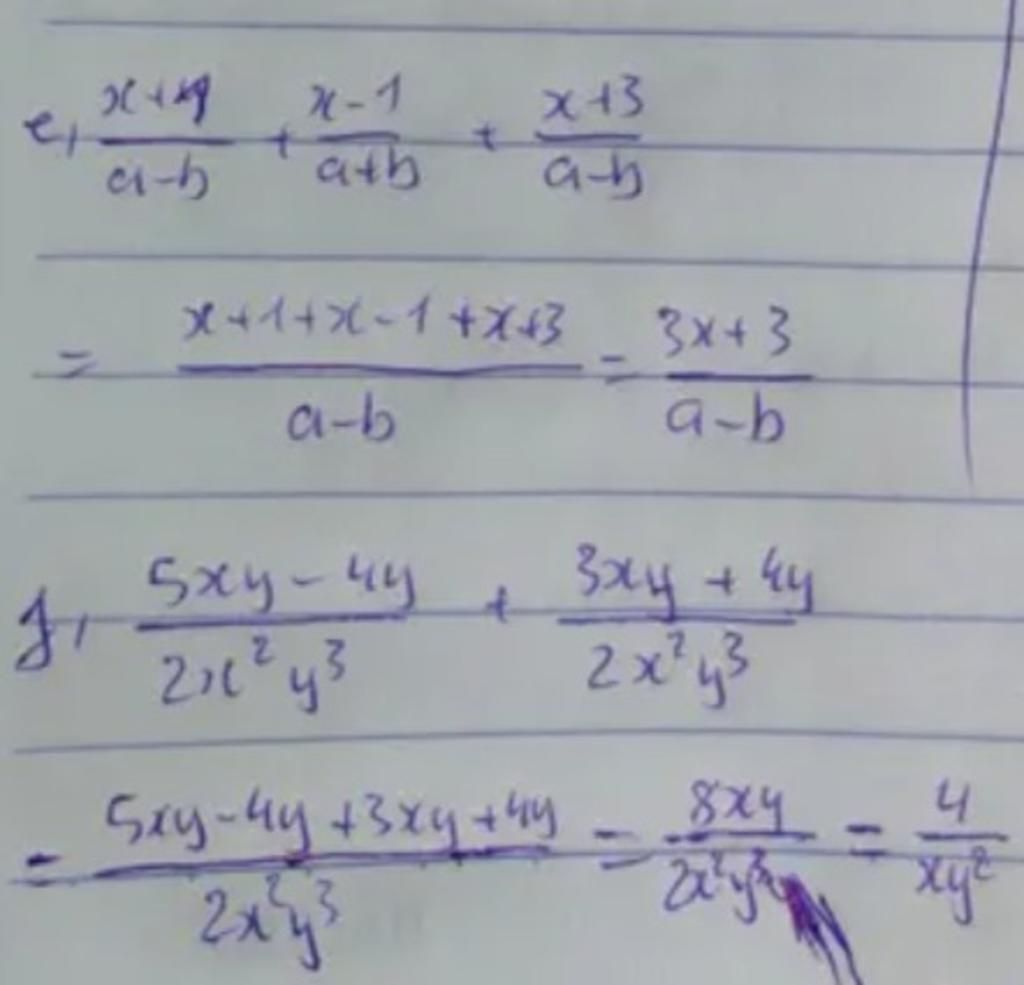 e, \frac{x+1}{a-b} + \frac{x-1}{a+b} + \frac{x+3}{a-b}
= \frac{x+1+x-1+x+3}{a-b} = \frac{3x+3}{a-b}
f, \frac{5xy-4y}{2x^2y^3} + \frac{3xy+4y}{2x^2y^3}
= \frac{5xy-4y+3xy+4y}{2x^2y^3} = \frac{8xy}{2x^2y^3} = \frac{4}{xy^2}